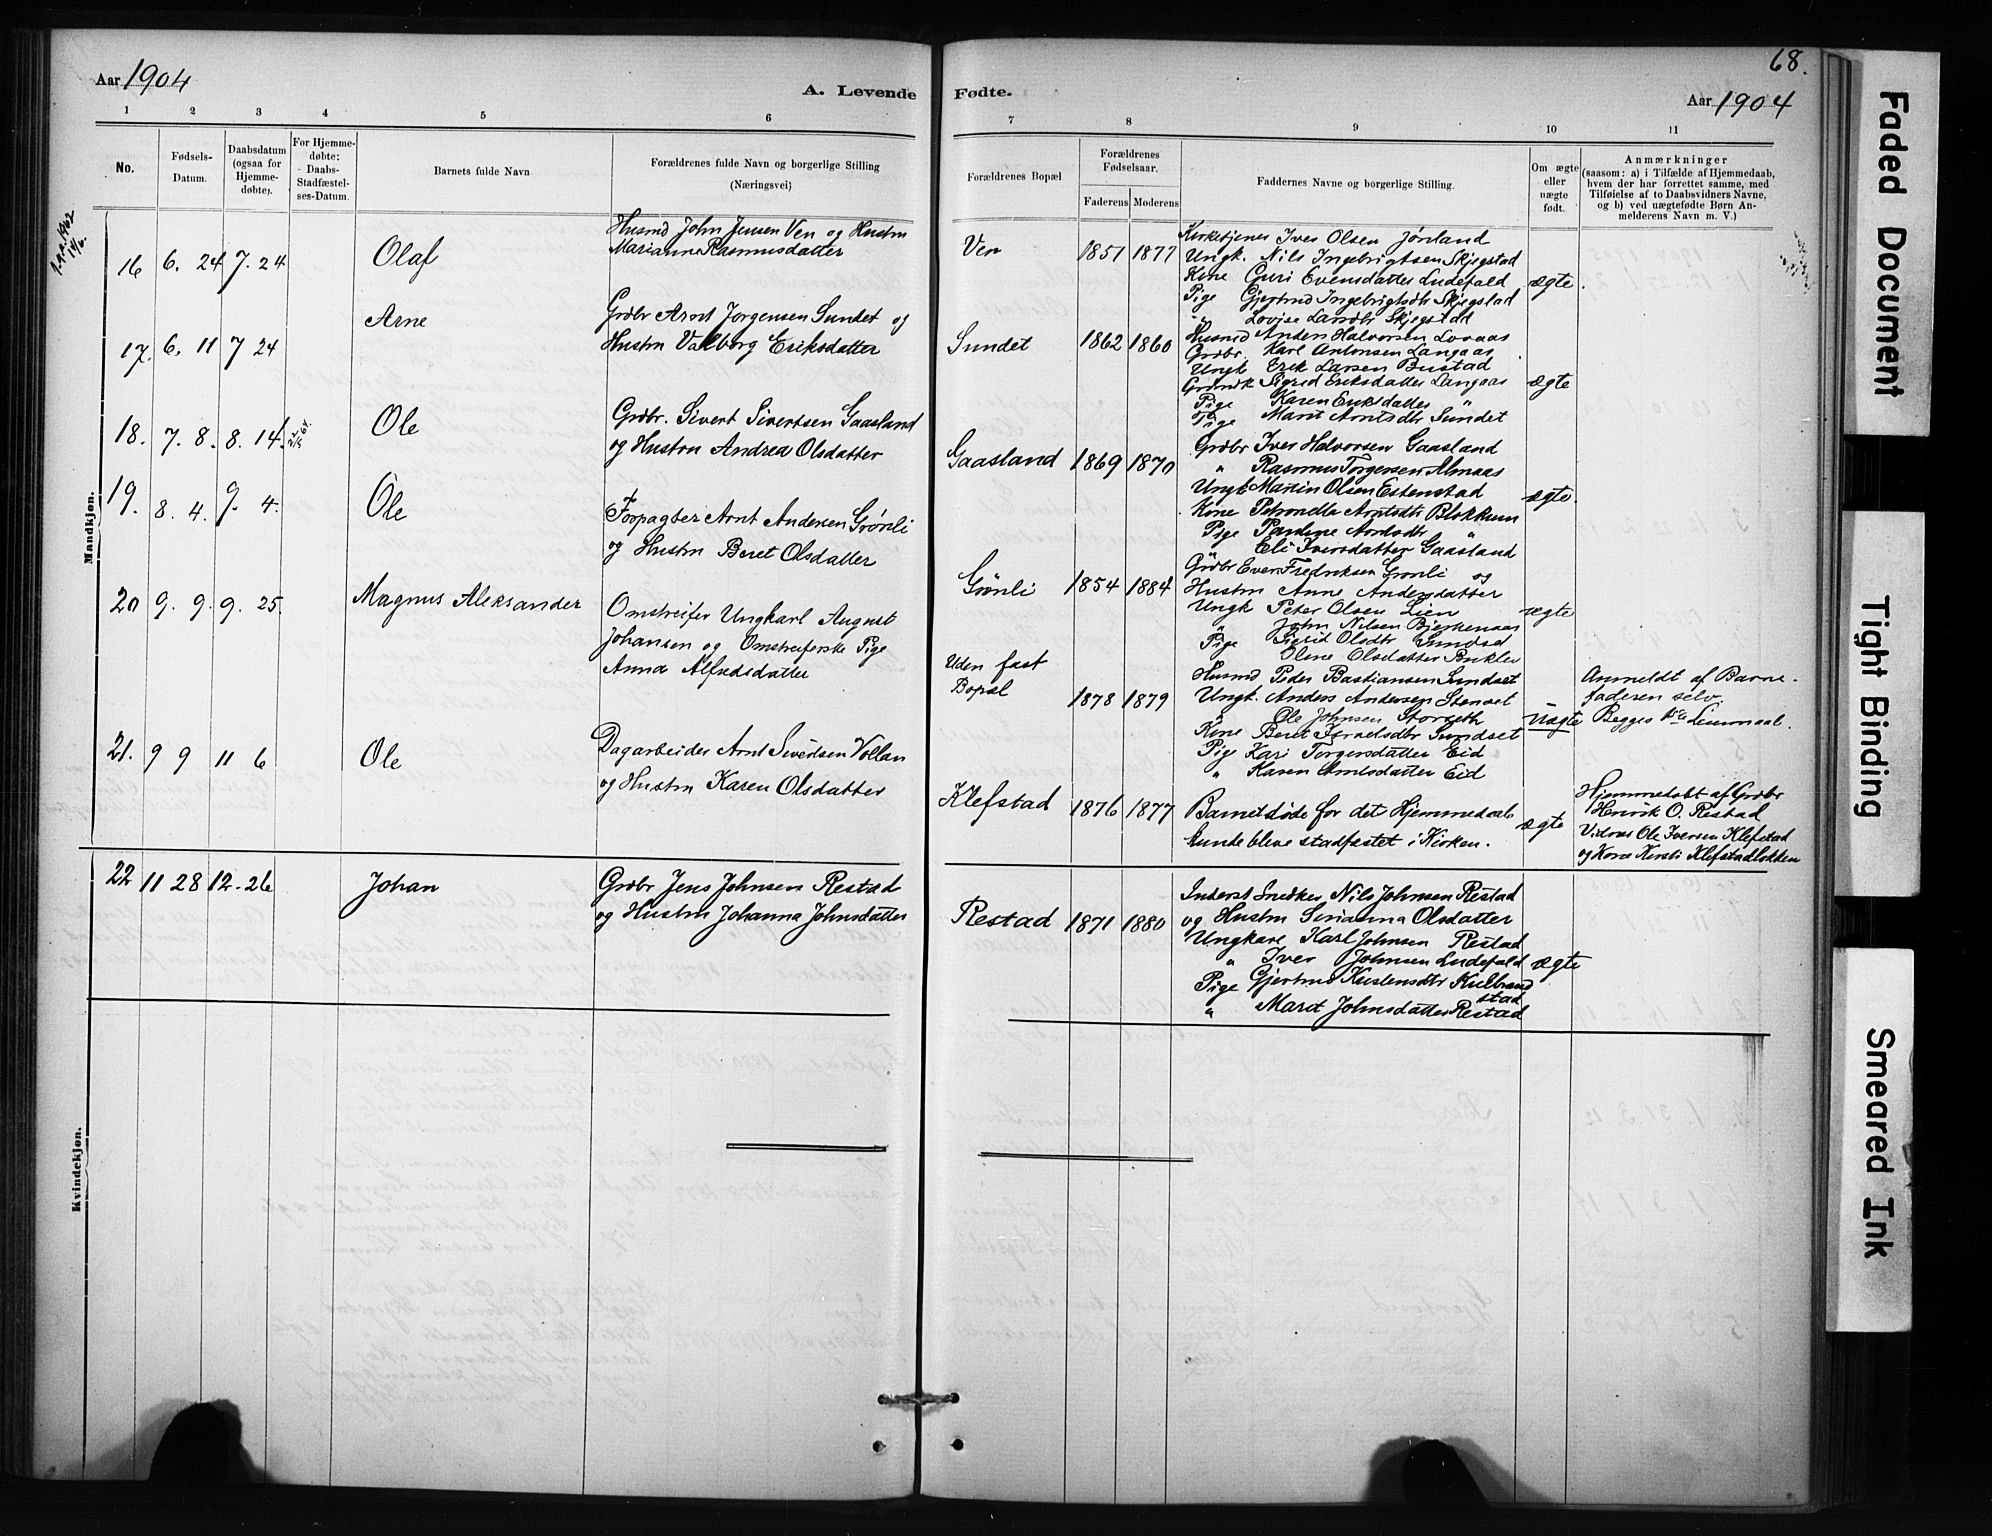 68.
Aar 1904
A. Levende
Fødte.
Aar 1904
1 2 3 4 5 6
7 8 9 10 11
No.
Fødsels-
Datum.
Daabsdatum
(ogsaa for
Hjemme-
døbte).
For Hjemme-
døbte:
Daabs-
Stadfæstel-
ses-Datum.
Barnets fulde Navn
Forældrenes fulde Navn og borgerlige Stilling
(Næringsvei)
Forældrenes Bopæl
Forældrenes
Fødselsaar.
Faderens Moderens
Faddernes Navne og borgerlige Stilling.
Om ægte
eller
uægte
født.
Anmærkninger
(saasom: a) i Tilfælde af Hjemmedaab,
hvem der har forrettet samme, med
Tilføielse af to Daabsvidners Navne,
og b) ved uægtefødte Børn An-
melderens Navn m. V.)
Mandkjøn.
16 6. 24 7. 24
Olaf
Husmd John Jensen Ven og Hustru
Marianne Rasmusdatter
Ven
1851 1877
Kirketjener Iver Olsen Jønland
Ungk. Nils Ingebrigtsen Skjegstad
Kone Guri Evensdatter Ludefald
Pige Gjertrud Ingebrigtsdtr Skjegstad
" Lovise Larsdtr Skjegstad
ægte
17. 6. 11 7 24
Arne
Grdbr Arnt Jørgensen Sundet og
Hustru Valborg Eriksdatter
Sundet
1862 1860
Husmd Anders Halvorsen
Grdbr. Karl Antonsen Langaas
Ungk Erik Larsen Bustad
Sigrid Eriksdatter Langaas
Pige Karen Eriksdatter "
Pige Marit Arntsdtr Sundet
ægte
18. 7. 8. 8. 14
Ole
Grdbr. Sivert Sivertsen Gaasland
og Hustru Andrea Olsdatter
Gaasland
1869 1870
Grdbr Iver Halvorsen Gaasland
" Rasmus Torgersen Almaas
Ungk Martin Olsen Estenstad
Kone Petronella Arntsdtr Blokkum
Pige Pauline Arntsdtr "
Eli Iversdatter Gaasland
ægte
19. 8. 4. 9. 4.
Ole
Forpagter Arnt Andersen Grønli
og Hustru Beret Olsdatter
Grønli
1854 1884
Grdbr Even Fredriksen Grønli og
Hustru Anne Andersdatter
Ungk Peter Olsen Lien
" John Nilsen Bjerkenaas
Pige Sigrid Olsdtr Sundset
Oline Olsdatter
ægte
20 9. 9. 9. 25.
Magnus Aleksander
Omstreifer Ungkarl August
Johansen og Omstreiferske Pige
Anna Alfredsdatter
Uden fast
Bopæl
1878 1879
Husmd Peder Bastiansen Sundset
Ungk. Anders Andersen
Ole Johnsen Storseth
Kone Beret Sundset
Pige Kari Torgersdatter Eid
" Karen Arntsdatter Eid
Uægte
Anmeldt af Barne-
faderen selv.
Begges 1ste Leiermaal.
21. 9 9 11 6
Ole
Dagarbeider Arnt Sivertsen Vollan
og Hustru Karen Olsdatter
Klefstad
1876 1877
Barnet døde før det Hjemmedaab
kunde bleve stadfæstet i Kirken.
ægte
Hjemmedøbt af Grdbr
Henrik O. Restad
Vidner Ole Iversen Klefstad
og Kone Kirsti Klefstadløkken
22 11 28 12. 26
Johan
Grdbr Jens Johnsen Restad
og Hustru Johanna Johnsdatter
Restad
1871 1880
Inderst Snedker Nils Johnsen Restad
og Hustru Serianna Olsdatter
Ungkarl Karl Johnsen Restad
" Iver Johnsen Ludefald
Pige Gjertrud
stad
" Marit Johnsdatter Restad
ægte
Kvindekjøn.
Faded Document
Tight Binding
Smeared Ink